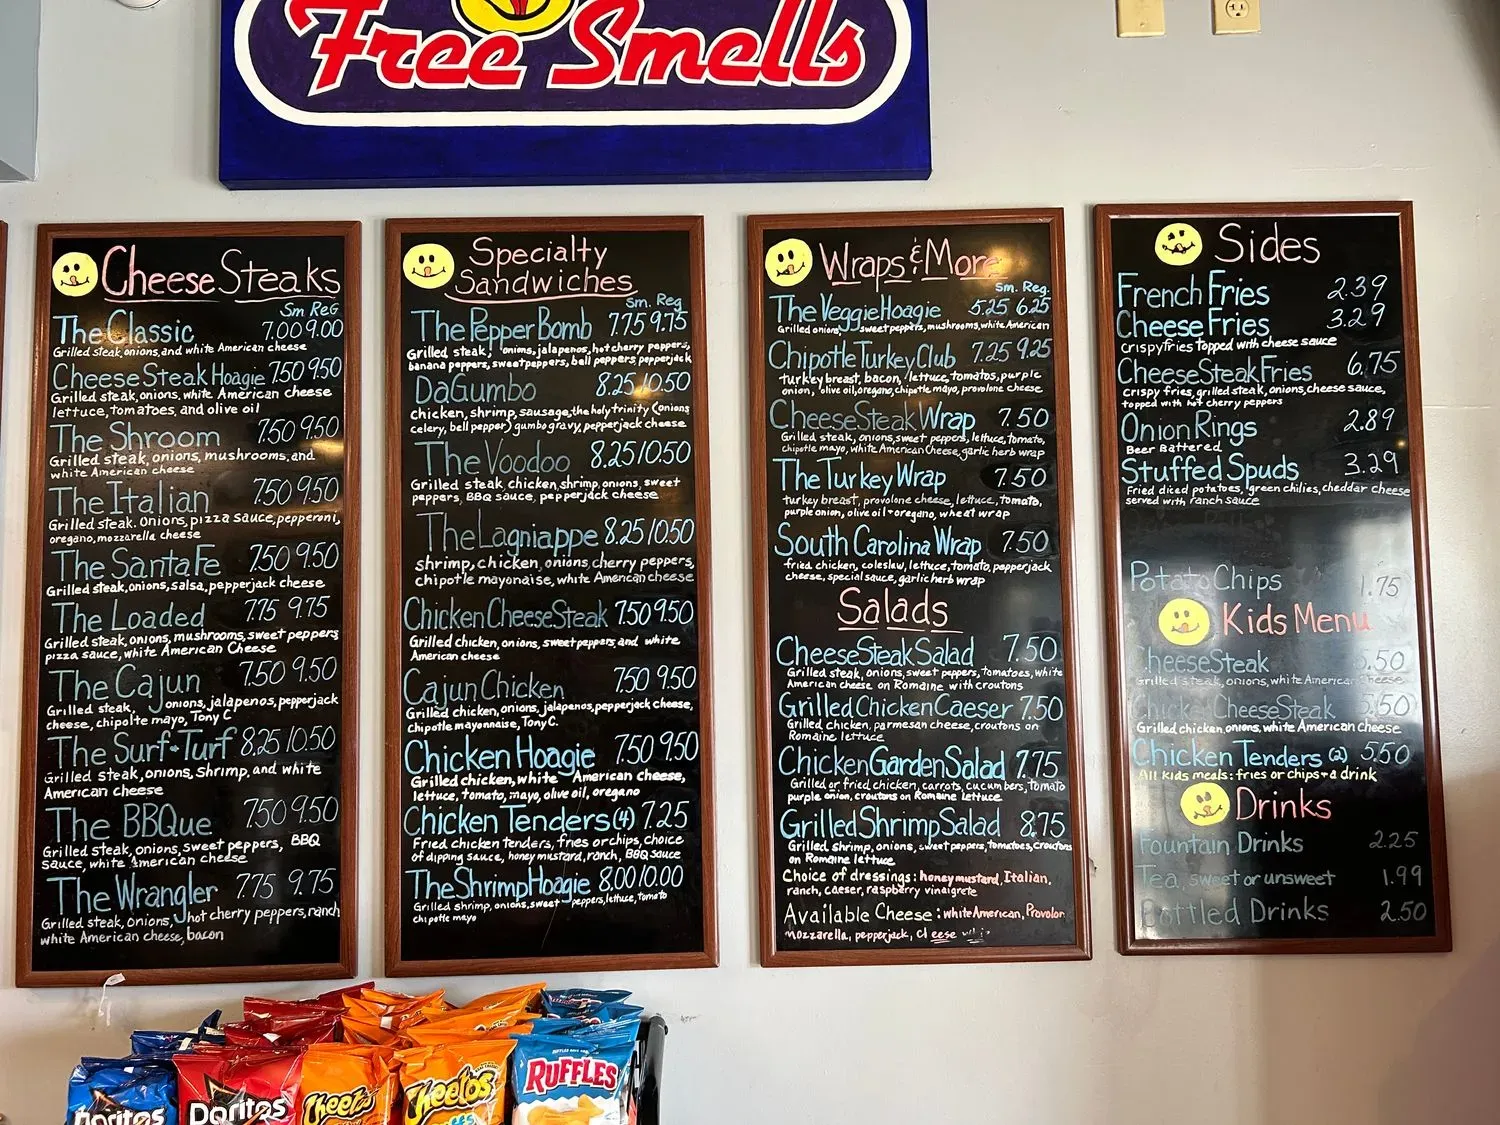 Free Smells
Cheese Steaks
Sm Reg
The Classic 7.00 9.00
Grilled steak, onions, and white American cheese
Cheese Steak Hoagie 7.50 9.50
Grilled steak, onions, white American cheese
lettuce, tomatoes, and olive oil
The Shroom 7.50 9.50
Grilled steak, onions, mushrooms, and
white American cheese
The Italian 7.50 9.50
Grilled steak. onions, pizza sauce, pepperoni,
oregano, mozzarella cheese
The Santa Fe 7.50 9.50
Grilled steak, onions, salsa, pepperjack cheese
The Loaded 7.75 9.75
Grilled steak, onions, mushrooms, sweet peppers
pizza sauce, white American Cheese
The Cajun 7.50 9.50
Grilled steak, onions, jalapenos, pepperjack
cheese, chipolte mayo, Tony C
The Surf-Turf 8.25 10.50
Grilled steak, onions, shrimp, and white
American cheese
The BBQue 7.50 9.50
Grilled steak, onions, sweet peppers, BBQ
sauce, white American cheese
The Wrangler 7.75 9.75
Grilled steak, onions, hot cherry peppers, ranch
white American cheese, bacon
Specialty
Sandwiches
Sm. Reg.
The Pepper Bomb 7.75 9.75
Grilled steak, onions, jalapenos, hot cherry peppers,
banana peppers, sweet peppers, bell peppers pepperjack
DaGumbo 8.25 10.50
chicken, shrimp, sausage, the holy trinity (onions
celery, bell pepper) gumbo gravy, pepperjack cheese
The Voodoo 8.25 10.50
Grilled steak, chicken, shrimp, onions, sweet
peppers, BBQ sauce, pepperjack cheese
The Lagniappe 8.25 10.50
shrimp, chicken, onions, cherry peppers,
chipotle mayonaise, white American cheese
Chicken Cheese Steak 7.50 9.50
Grilled chicken, onions, sweet peppers, and white
American cheese
Cajun Chicken 7.50 9.50
Grilled chicken, onions, jalapenos, pepperjack cheese,
Chipotle mayonnaise, Tony C.
Chicken Hoagie 7.50 9.50
Grilled chicken, white American cheese,
lettuce, tomato, mayo, olive oil, oregano
Chicken Tenders (4) 7.25
Fried chicken tenders, fries or chips, choice
of dipping sauce, honey mustard, ranch, BBQ sauce
The Shrimp Hoagie 8.00 10.00
Grilled shrimp, onions, sweet peppers, lettuce, tomato
chipotle mayo
Wraps & More
Sm. Reg.
The Veggie Hoagie 5.25 6.25
Grilled onions, sweet peppers, mushrooms, white American
Chipotle Turkey Club 7.25 9.25
turkey breast, bacon, lettuce, tomatos, purple
onion, olive oil, oregano, chipotle mayo, provolone cheese
Cheese Steak Wrap 7.50
Grilled steak, onions, sweet peppers, lettuce, tomato,
chipotle mayo, white American Cheese, garlic herb wrap
The Turkey Wrap 7.50
turkey breast, provolone cheese, lettuce, tomato,
purple onion, olive oil + oregano, wheat wrap
South Carolina Wrap 7.50
fried chicken, coleslaw, lettuce, tomato, pepperjack
cheese, special sauce, garlic herb wrap
Salads
Cheese Steak Salad 7.50
Grilled steak, onions, sweet peppers, tomatoes, white
American cheese on Romaine with croutons
Grilled Chicken Caeser 7.50
Grilled chicken, parmesan cheese, croutons on
Romaine lettuce
Chicken Garden Salad 7.75
Grilled or fried chicken, carrots, cucumbers, tomato
purple onion, croutons on Romaine Lettuce
Grilled Shrimp Salad 8.75
Grilled shrimp, onions, sweet peppers, tomatoes, croutons
on Romaine lettuce
Choice of dressings: honey mustard, Italian,
ranch, caeser, raspberry vinaigrete
Available Cheese: white American, Provolon
mozzarella, pepperjack, cheese
Sides
French Fries 2.39
Cheese Fries 3.29
crispy fries topped with cheese sauce
Cheese Steak Fries 6.75
crispy fries, grilled steak, onions, cheese sauce,
topped with hot cherry peppers
Onion Rings 2.89
Beer Battered
Stuffed Spuds 3.29
Fried diced potatoes, green chilies, cheddar cheese
served with ranch sauce
Potato Chips 1.75
Kids Menu
Cheese Steak 5.50
Grilled steak, onions, white American cheese
Chicken Cheese Steak 5.50
Grilled chicken, onions, white American Cheese
Chicken Tenders (2) 5.50
All kids meals: fries or chips + a drink
Drinks
Fountain Drinks 2.25
Tea, sweet or unsweet 1.99
Bottled Drinks 2.50
Doritos
Doritos
Cheetos
Cheetos
RUFFLES